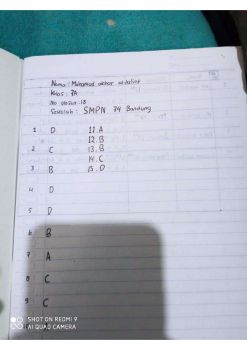 Nama : Muhamad akbar alfalint
Kelas : 7A
No absen : 18
Sekolah : SMPN 74 Bandung
1 D 11. A
12. B
2 C 13. B
14. C
3 B 15. D
4 D
5 D
6 B
7 A
8 C
9 C
SHOT ON REDMI 9
AI QUAD CAMERA